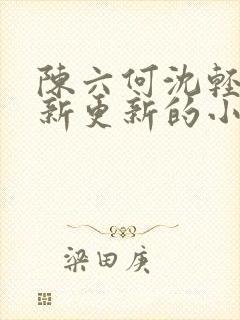 陳六何沈輕
新更新的小
梁田庚